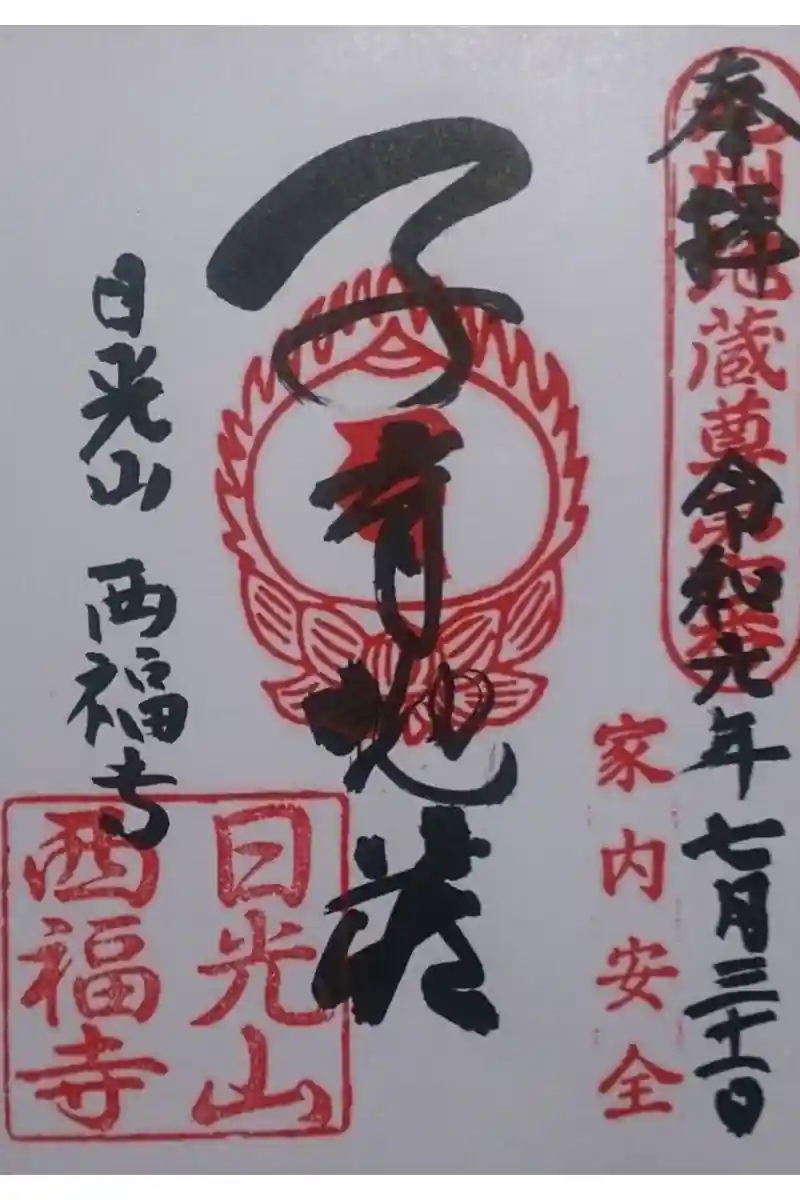 奉拝
令和六年七月三十一日
州地蔵尊
家内安全
子育地蔵
日光山 西福寺
日光山
西福寺